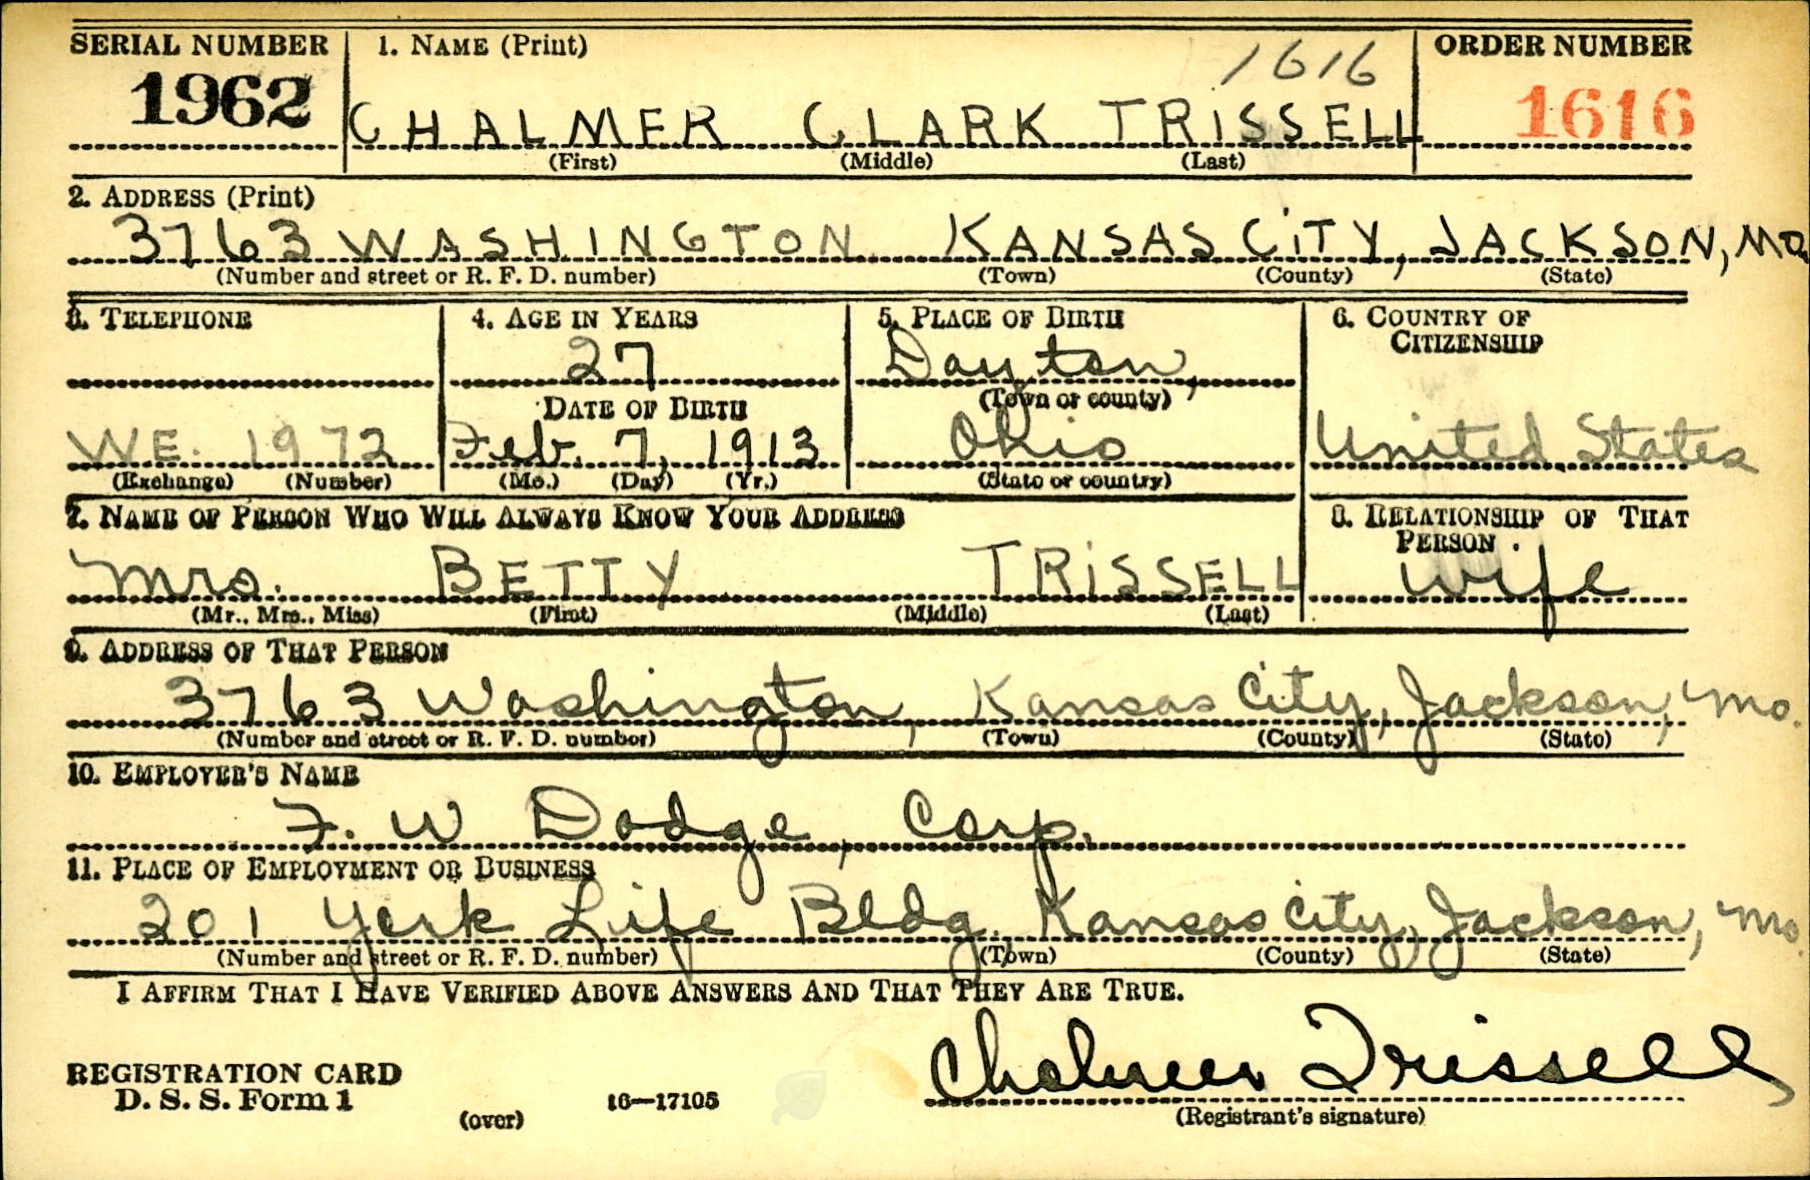 SERIAL NUMBER
1. NAME (Print)
ORDER NUMBER
1962
1616
1616
CHALMER CLARK TRISSELL
(First) (Middle) (Last)
2. ADDRESS (Print)
3763 WASHINGTON KANSAS CITY, JACKSON, MO.
(Number and street or R. F. D. number) (Town) (County) (State)
3. TELEPHONE
4. AGE IN YEARS
5. PLACE OF BIRTH
6. COUNTRY OF
CITIZENSHIP
27
Dayton,
(Town or county)
DATE OF BIRTH
WE. 1972
Feb. 7, 1913
Ohio
United States
(Exchange) (Number) (Mo.) (Day) (Yr.) (State or country)
7. NAME OF PERSON WHO WILL ALWAYS KNOW YOUR ADDRESS
8. RELATIONSHIP OF THAT
PERSON .
Mrs. BETTY TRISSELL
wife
(Mr., Mrs., Miss) (First) (Middle) (Last)
9. ADDRESS OF THAT PERSON
3763 Washington, Kansas City, Jackson, Mo.
(Number and street or R. F. D. number) (Town) (County) (State)
10. EMPLOYER'S NAME
F. W Dodge, Corp.
11. PLACE OF EMPLOYMENT OR BUSINESS
201 York Life Bldg. Kansas City, Jackson, Mo.
(Number and street or R. F. D. number) (Town) (County) (State)
I AFFIRM THAT I HAVE VERIFIED ABOVE ANSWERS AND THAT THEY ARE TRUE.
Chalmer Trissell
REGISTRATION CARD
D. S. S. Form 1
(over)
16—17105
(Registrant's signature)